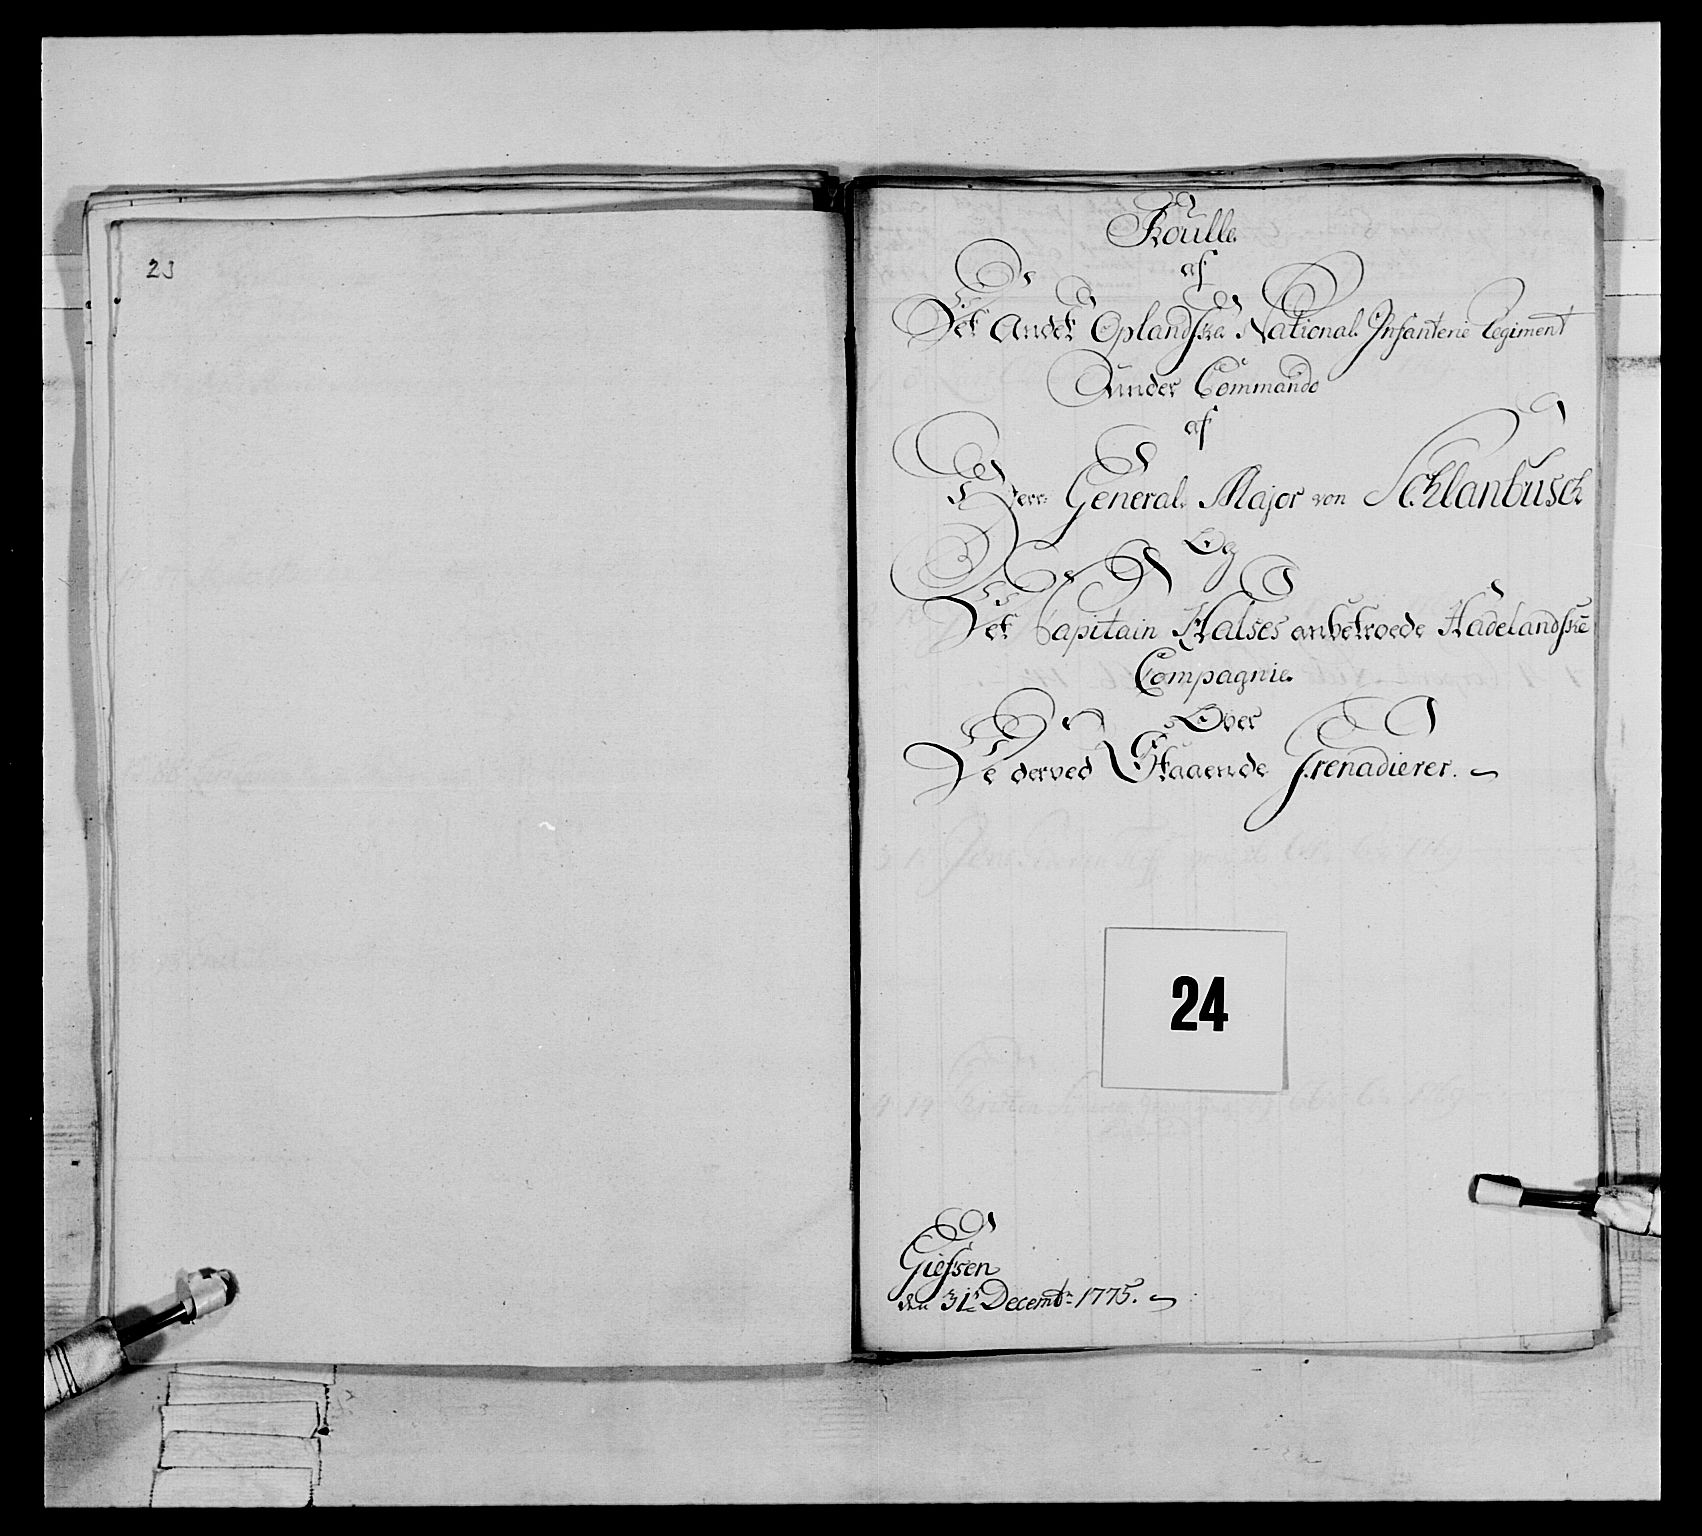 23
Roulle
af
Det Andet Oplandske National Infanterie Regiment
under Commando
af
Herr General Major von Schlanbusch
Og
Det Capitain Kalses anbetroede Hadelandske
Compagnie
Over
De derved Staaende Grenadierer.
24
Giefsen
den 31te Decembr 1775.